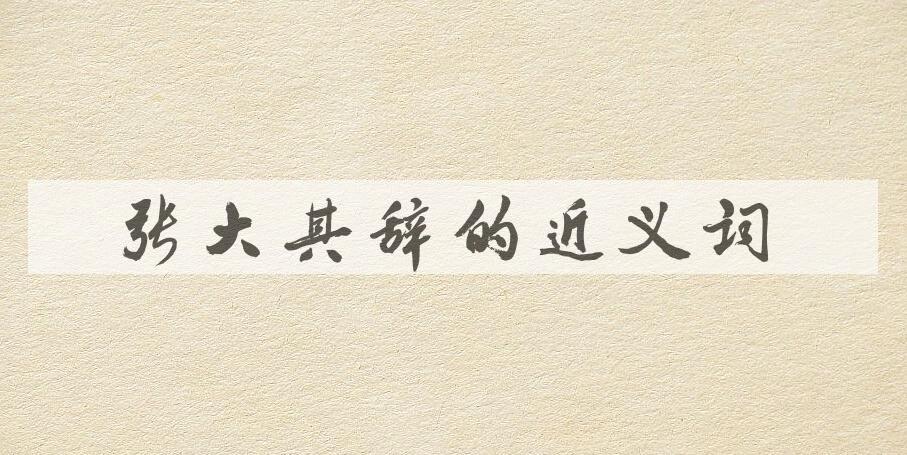 张大其辞的近义词